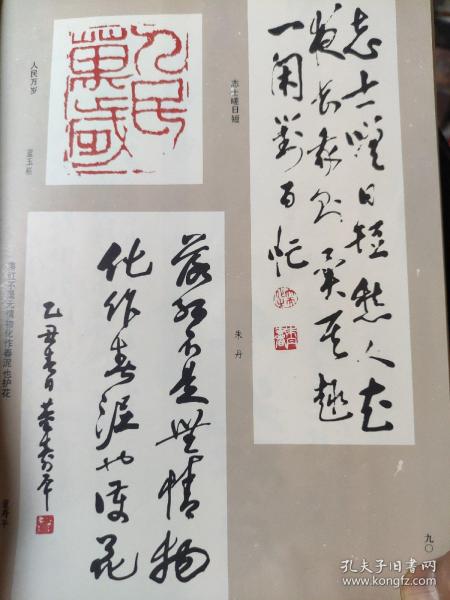 志士嗟日短愁人知
夜长我则异其趣
一闲對百忙
志士嗟日短
朱丹
人民
萬歲
人民万岁
落红不是無情物
化作春泥也護花
乙丑春日董寿平
落红不是无情物化作春泥也护花
董寿平
九〇
孔夫子旧书网